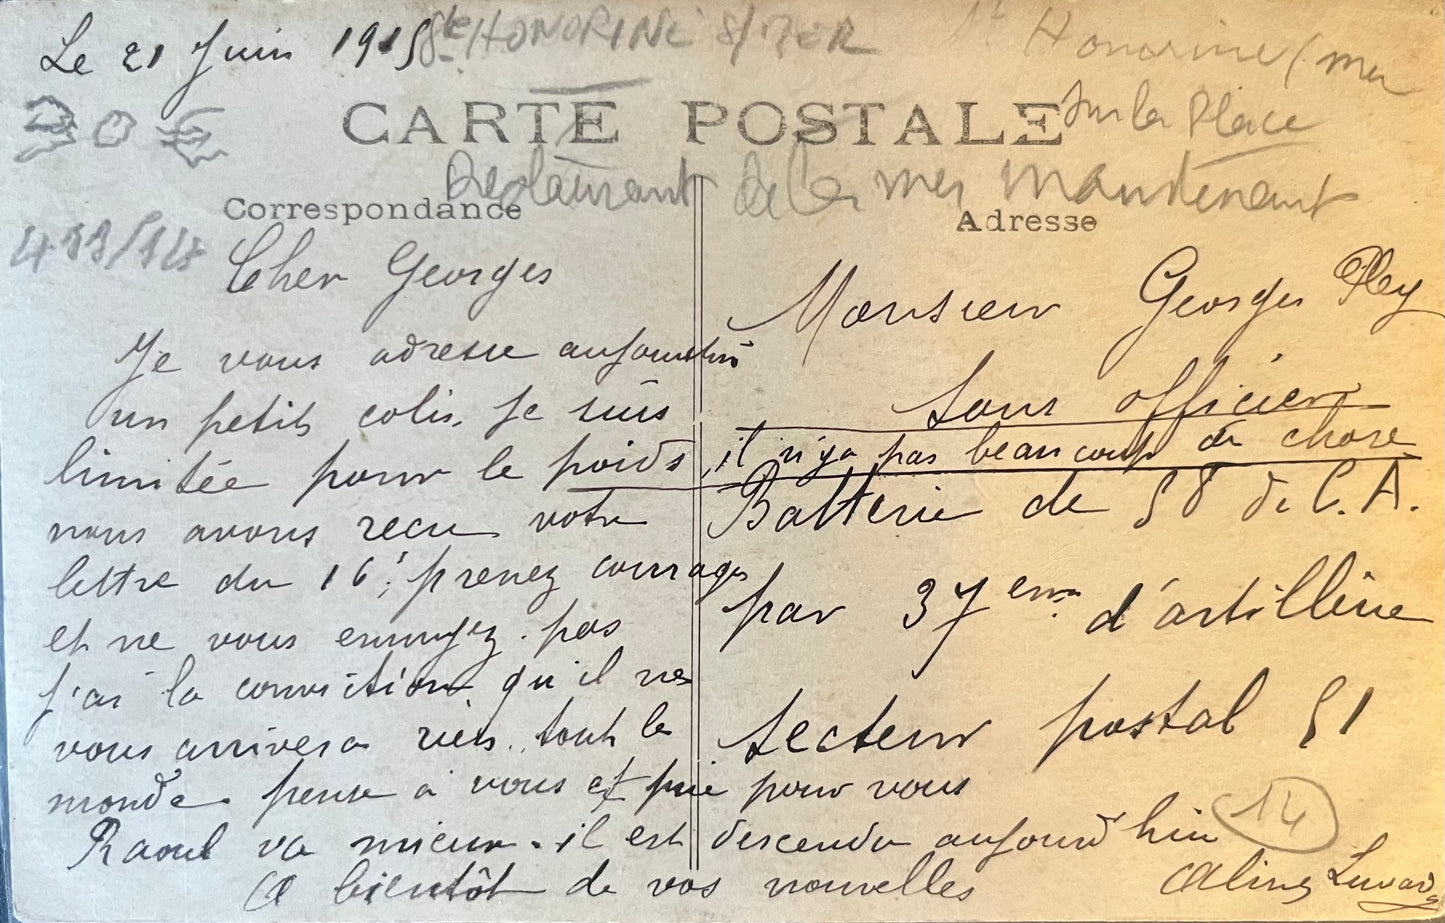 Le 21 Juin 1915
Ste HONORINE S/MER
St Honorine / mer
sur la Place
30 €
CARTE POSTALE
Restaurant de la mer maintenant
Correspondance
Adresse
Cher Georges
Je vous adresse aujourdhui
un petit colis, je suis
limitée pour le poids, il n'ya pas beaucoup de chose
nous avons recu votre
lettre du 16, prenez courage
et ne vous ennuyez pas
j'ai la conviction qu'il ne
vous arrivera rien. tout le
monde pense à vous et prie pour vous
Raoul va mieux. il est descendu aujourd'hui
A bientôt de vos nouvelles
Aline
Monsieur Georges
Sous officier
Batterie de 58 de C.A.
par 37eme d'artillerie
Secteur postal 51
14